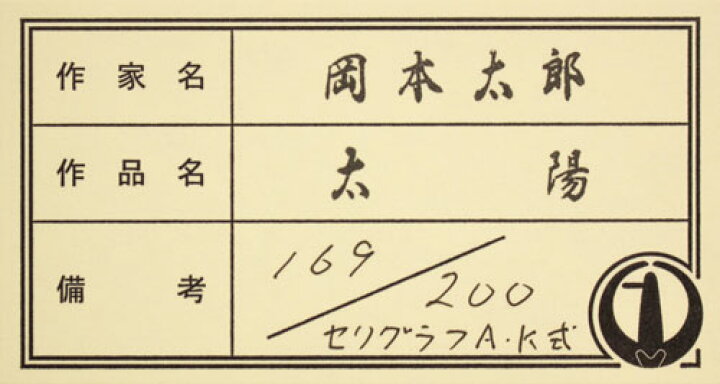 作家名 岡本太郎
作品名 太陽
備考 169/200
セリグラフA.K式